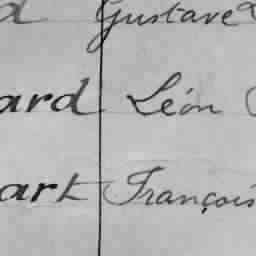 d Gustave
ard Léon
art François